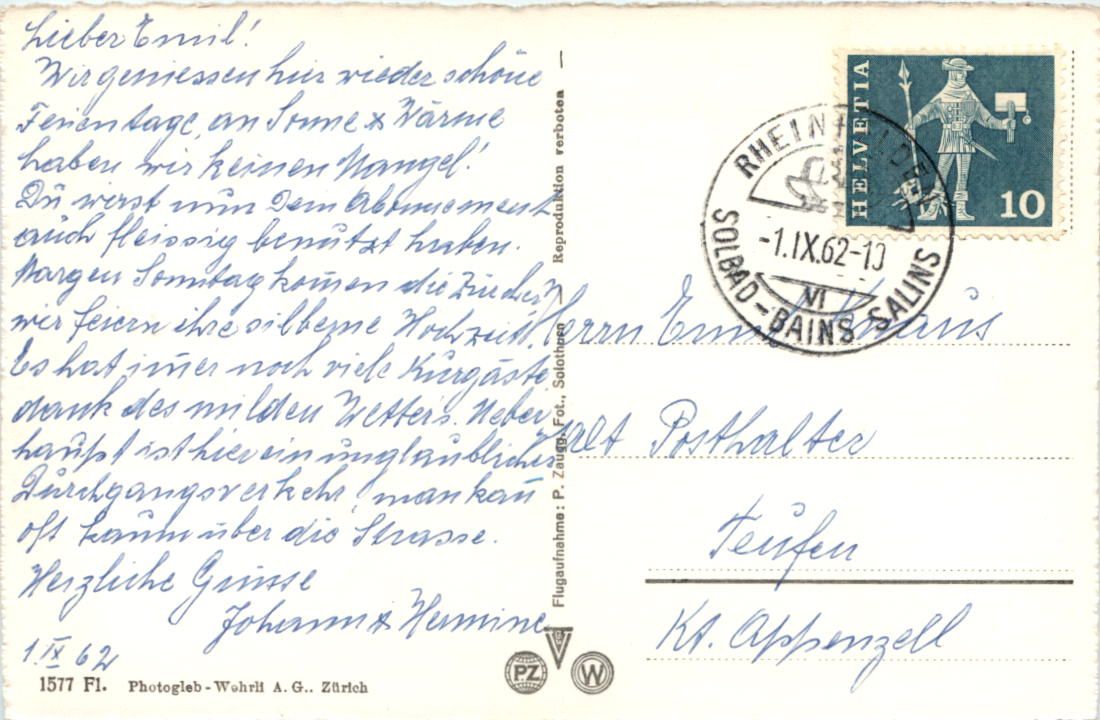 Lieber Emil!
Wir geniessen hier wieder schöne
Ferientage, an Sonne & Wärme
haben wir keinen Mangel!
Du wirst nun Dein Abonnement
auch fleissig benützt haben.
Morgen Sonntag kommen die Züricher,
wir feiern ihre silberne Hochzeit.
Es hat immer noch viele Kurgäste,
dank des milden Wetters. Ueber
haupt ist hier ein unglaublicher
Durchgangsverkehr, man kann
oft kaum über die Strasse.
Herzliche Grüsse
Johann & Hermine
1.IX 62
1577 Fl. Photogleb-Wehrli A. G.. Zürich
Flugaufnahme: P. Zaugg. Fot., Solothurn
Reproduktion verboten
PZ
W
HELVETIA
10
RHEINFELDEN
-1.IX.62-10
VI
SOLBAD-BAINS SALINS
Herrn Emil
alt Posthalter
Teufen
Kt. Appenzell